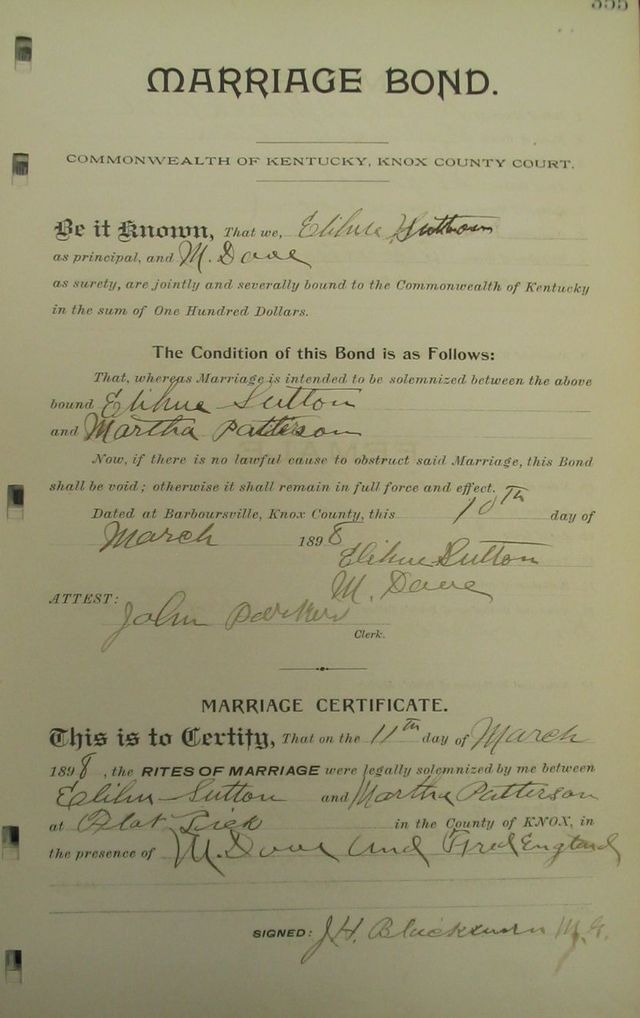 355
MARRIAGE BOND.
COMMONWEALTH OF KENTUCKY, KNOX COUNTY COURT.
Be it Known, That we, Elihue Sutton
as principal, and M. Dove
as surety, are jointly and severally bound to the Commonwealth of Kentucky
in the sum of One Hundred Dollars.
The Condition of this Bond is as Follows:
That, whereas Marriage is intended to be solemnized between the above
bound Elihue Sutton
and Martha Patterson
Now, if there is no lawful cause to obstruct said Marriage, this Bond
shall be void; otherwise it shall remain in full force and effect.
Dated at Barboursville, Knox County, this 10th day of
March 1898
Elihue Sutton
M. Dove
ATTEST:
John Parker
Clerk.
MARRIAGE CERTIFICATE.
This is to Certify, That on the 11th day of March
1898, the RITES OF MARRIAGE were legally solemnized by me between
Elihu Sutton and Martha Patterson
at Flat Lick in the County of KNOX, in
the presence of M. Dove and Fred England
SIGNED: J.H. Blackburn M.G.